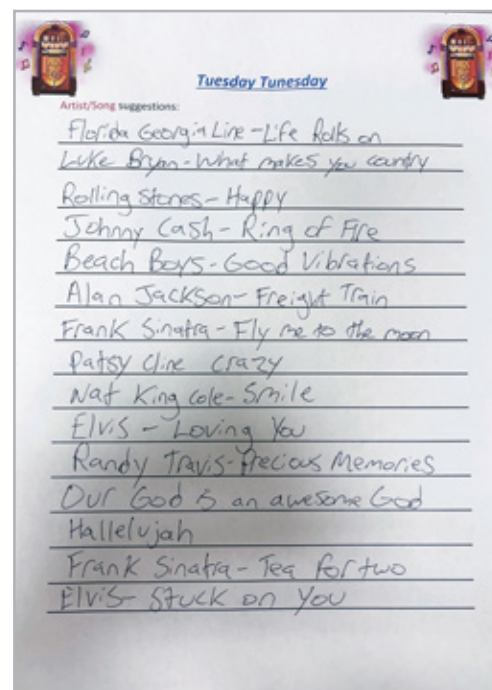 Tuesday Tunesday
Artist/Song suggestions:
Florida Georgia Line - Life Rolls on
Luke Bryan - What makes you country
Rolling Stones - Happy
Johnny Cash - Ring of Fire
Beach Boys - Good Vibrations
Alan Jackson - Freight Train
Frank Sinatra - Fly me to the moon
Patsy Cline crazy
Nat King Cole - Smile
Elvis - Loving You
Randy Travis - Precious Memories
Our God is an awesome God
Hallelujah
Frank Sinatra - Tea for two
Elvis - Stuck on You